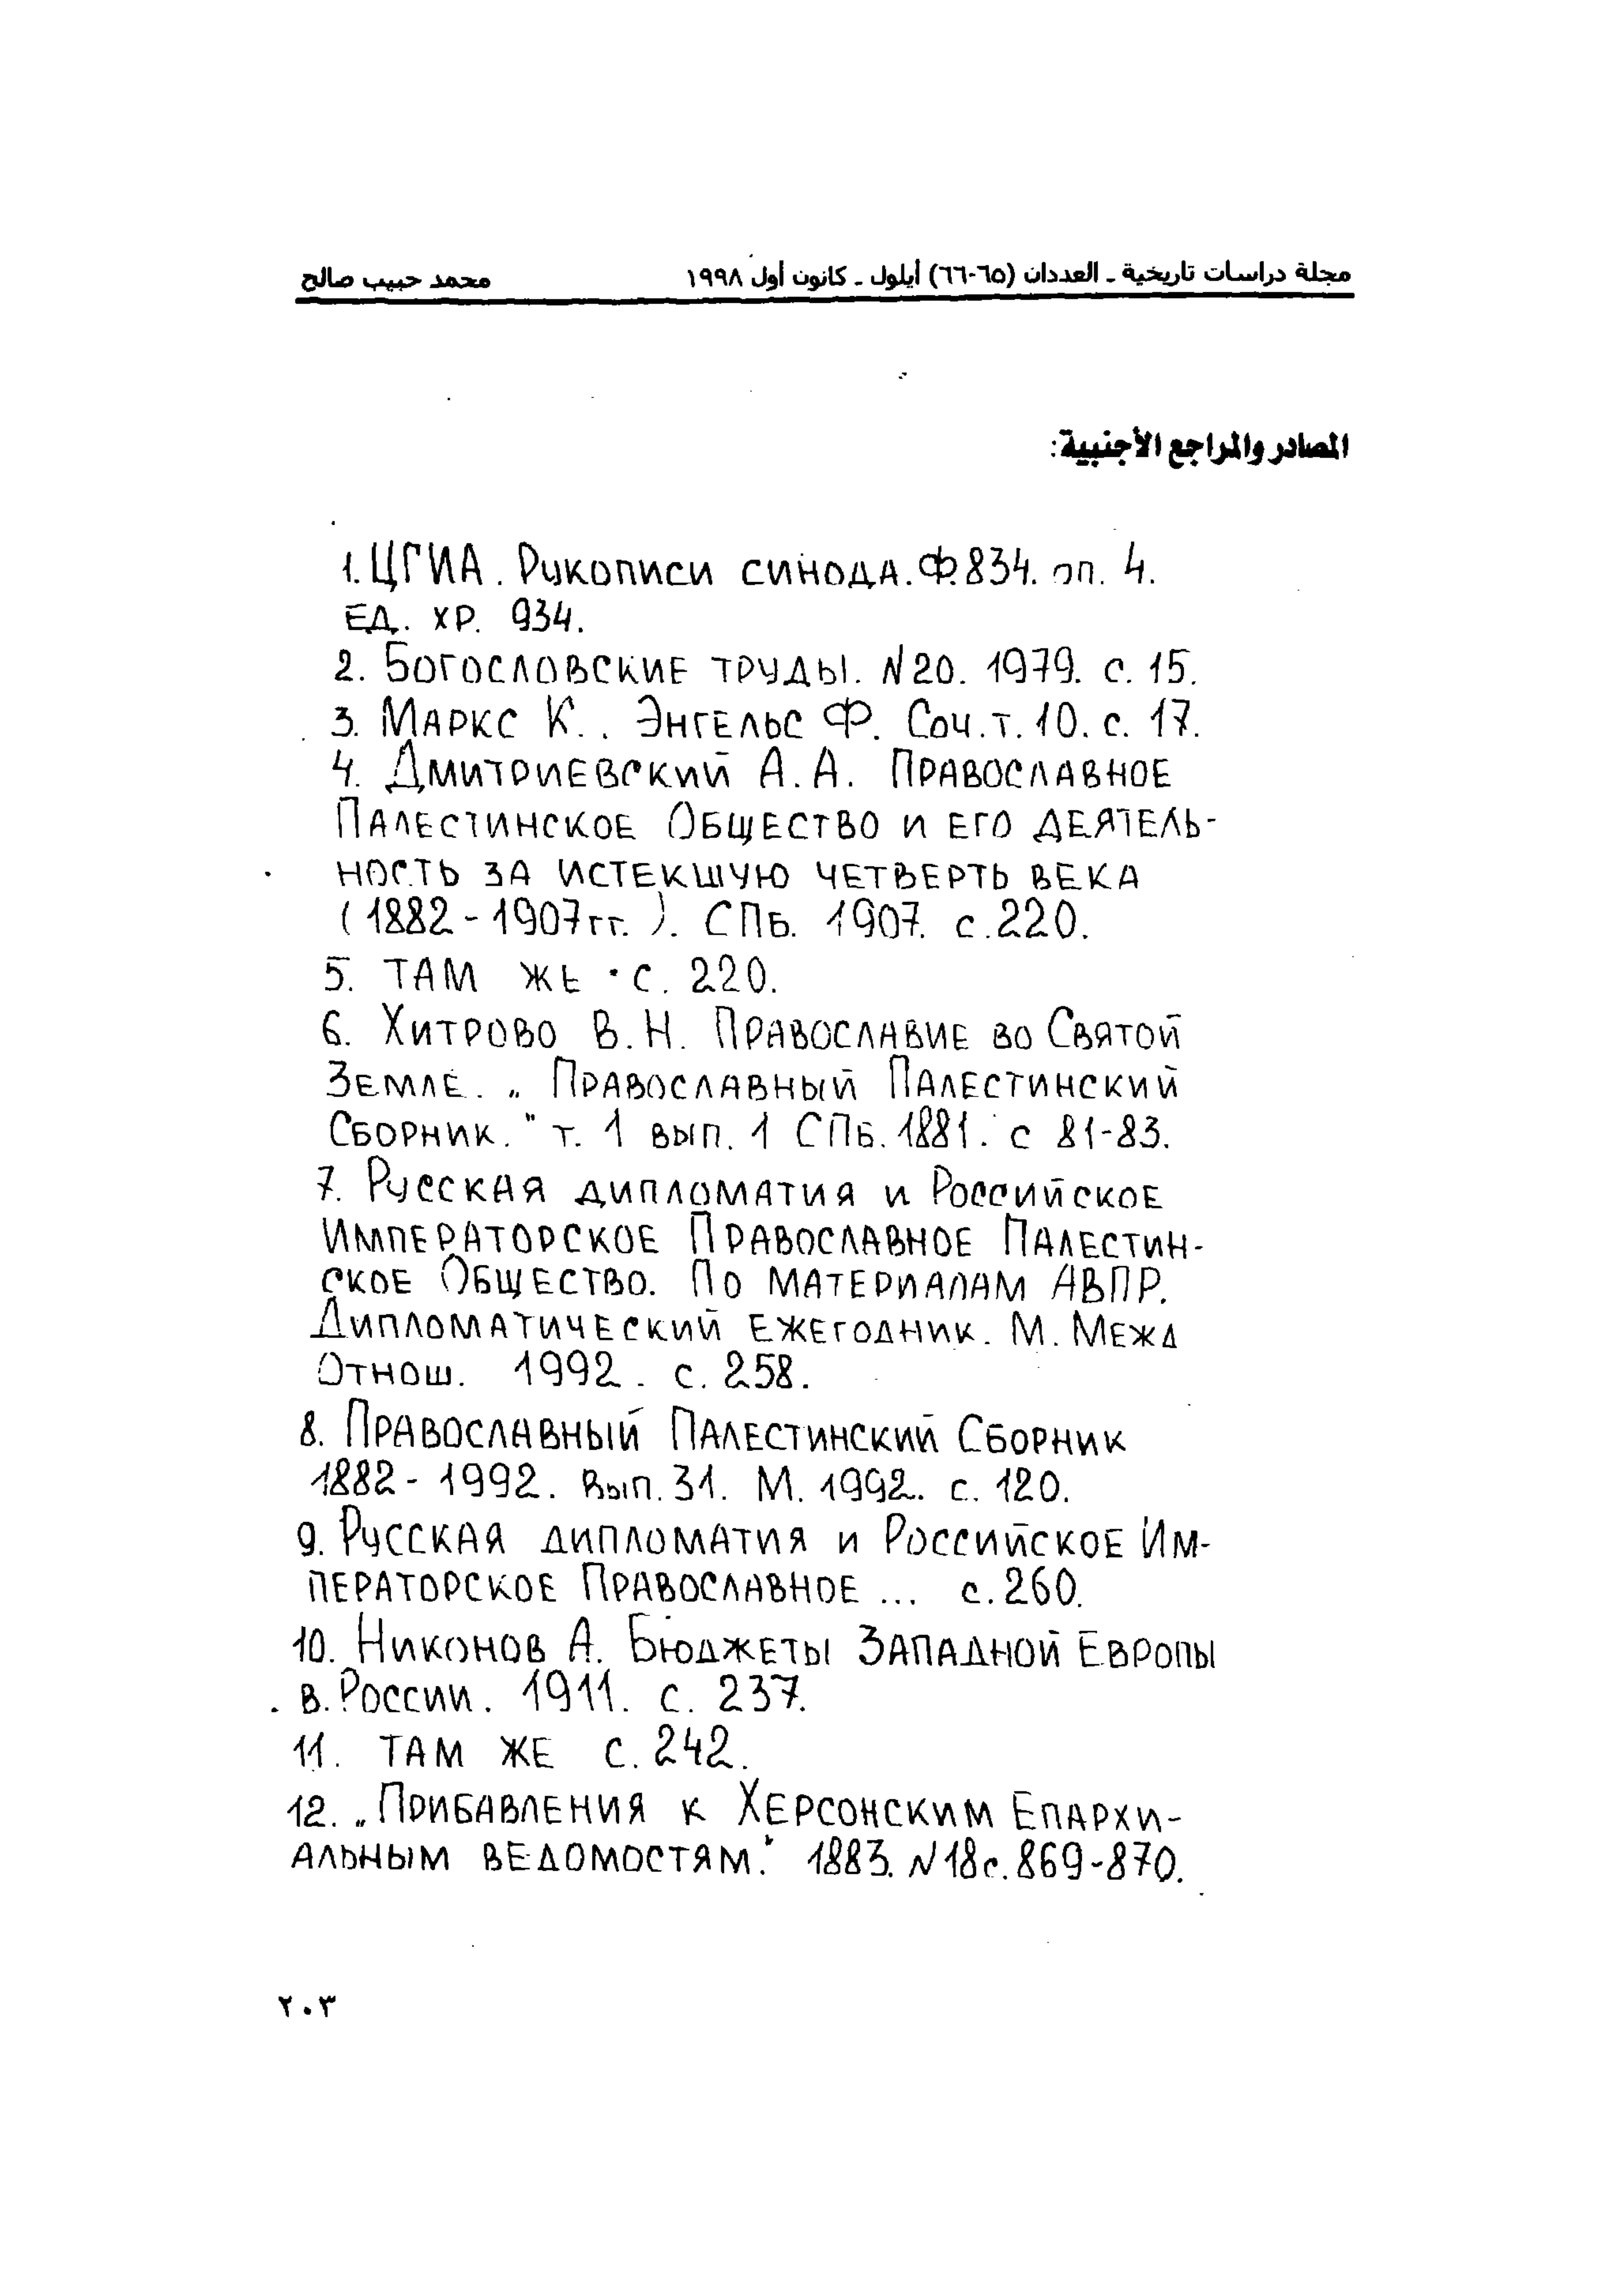 مجلة دراسات تاريخية ـ العددان (٦٥-٦٦) أيلول ـ كانون أول ١٩٩٨ محمد حبيب صالح
المصادر والمراجع الأجنبية:
1. ЦГИА. Рукописи синода. Ф.834. оп. 4.
ЕД. ХР. 934.
2. Богословские труды. N20. 1979. с. 15.
3. Маркс К.. Энгельс Ф. Соч. т. 10. с. 17.
4. Дмитриевский А.А. Православное
Палестинское Общество и его деятель-
ность за истекшую четверть века
(1882-1907гг.). СПб. 1907. с.220.
5. Там же • с. 220.
6. Хитрово В.Н. Православие во Святой
Земле. „ Православный Палестинский
Сборник." т. 1 вып. 1 СПб. 1881. с 81-83.
7. Русская дипломатия и Российское
Императорское Православное Палестин-
ское Общество. По материалам АВПР.
Дипломатический ежегодник. М. Межд
Отнош. 1992. с. 258.
8. Православный Палестинский Сборник
1882-1992. Вып. 31. М. 1992. с. 120.
9. Русская дипломатия и Российское Им-
ператорское Православное ... с. 260.
10. Никонов А. Бюджеты Западной Европы
в. России. 1911. с. 237.
11. Там же с. 242.
12. „Прибавления к Херсонским Епархи-
альным ведомостям." 1883. N18 с. 869-870.
٢٠٣